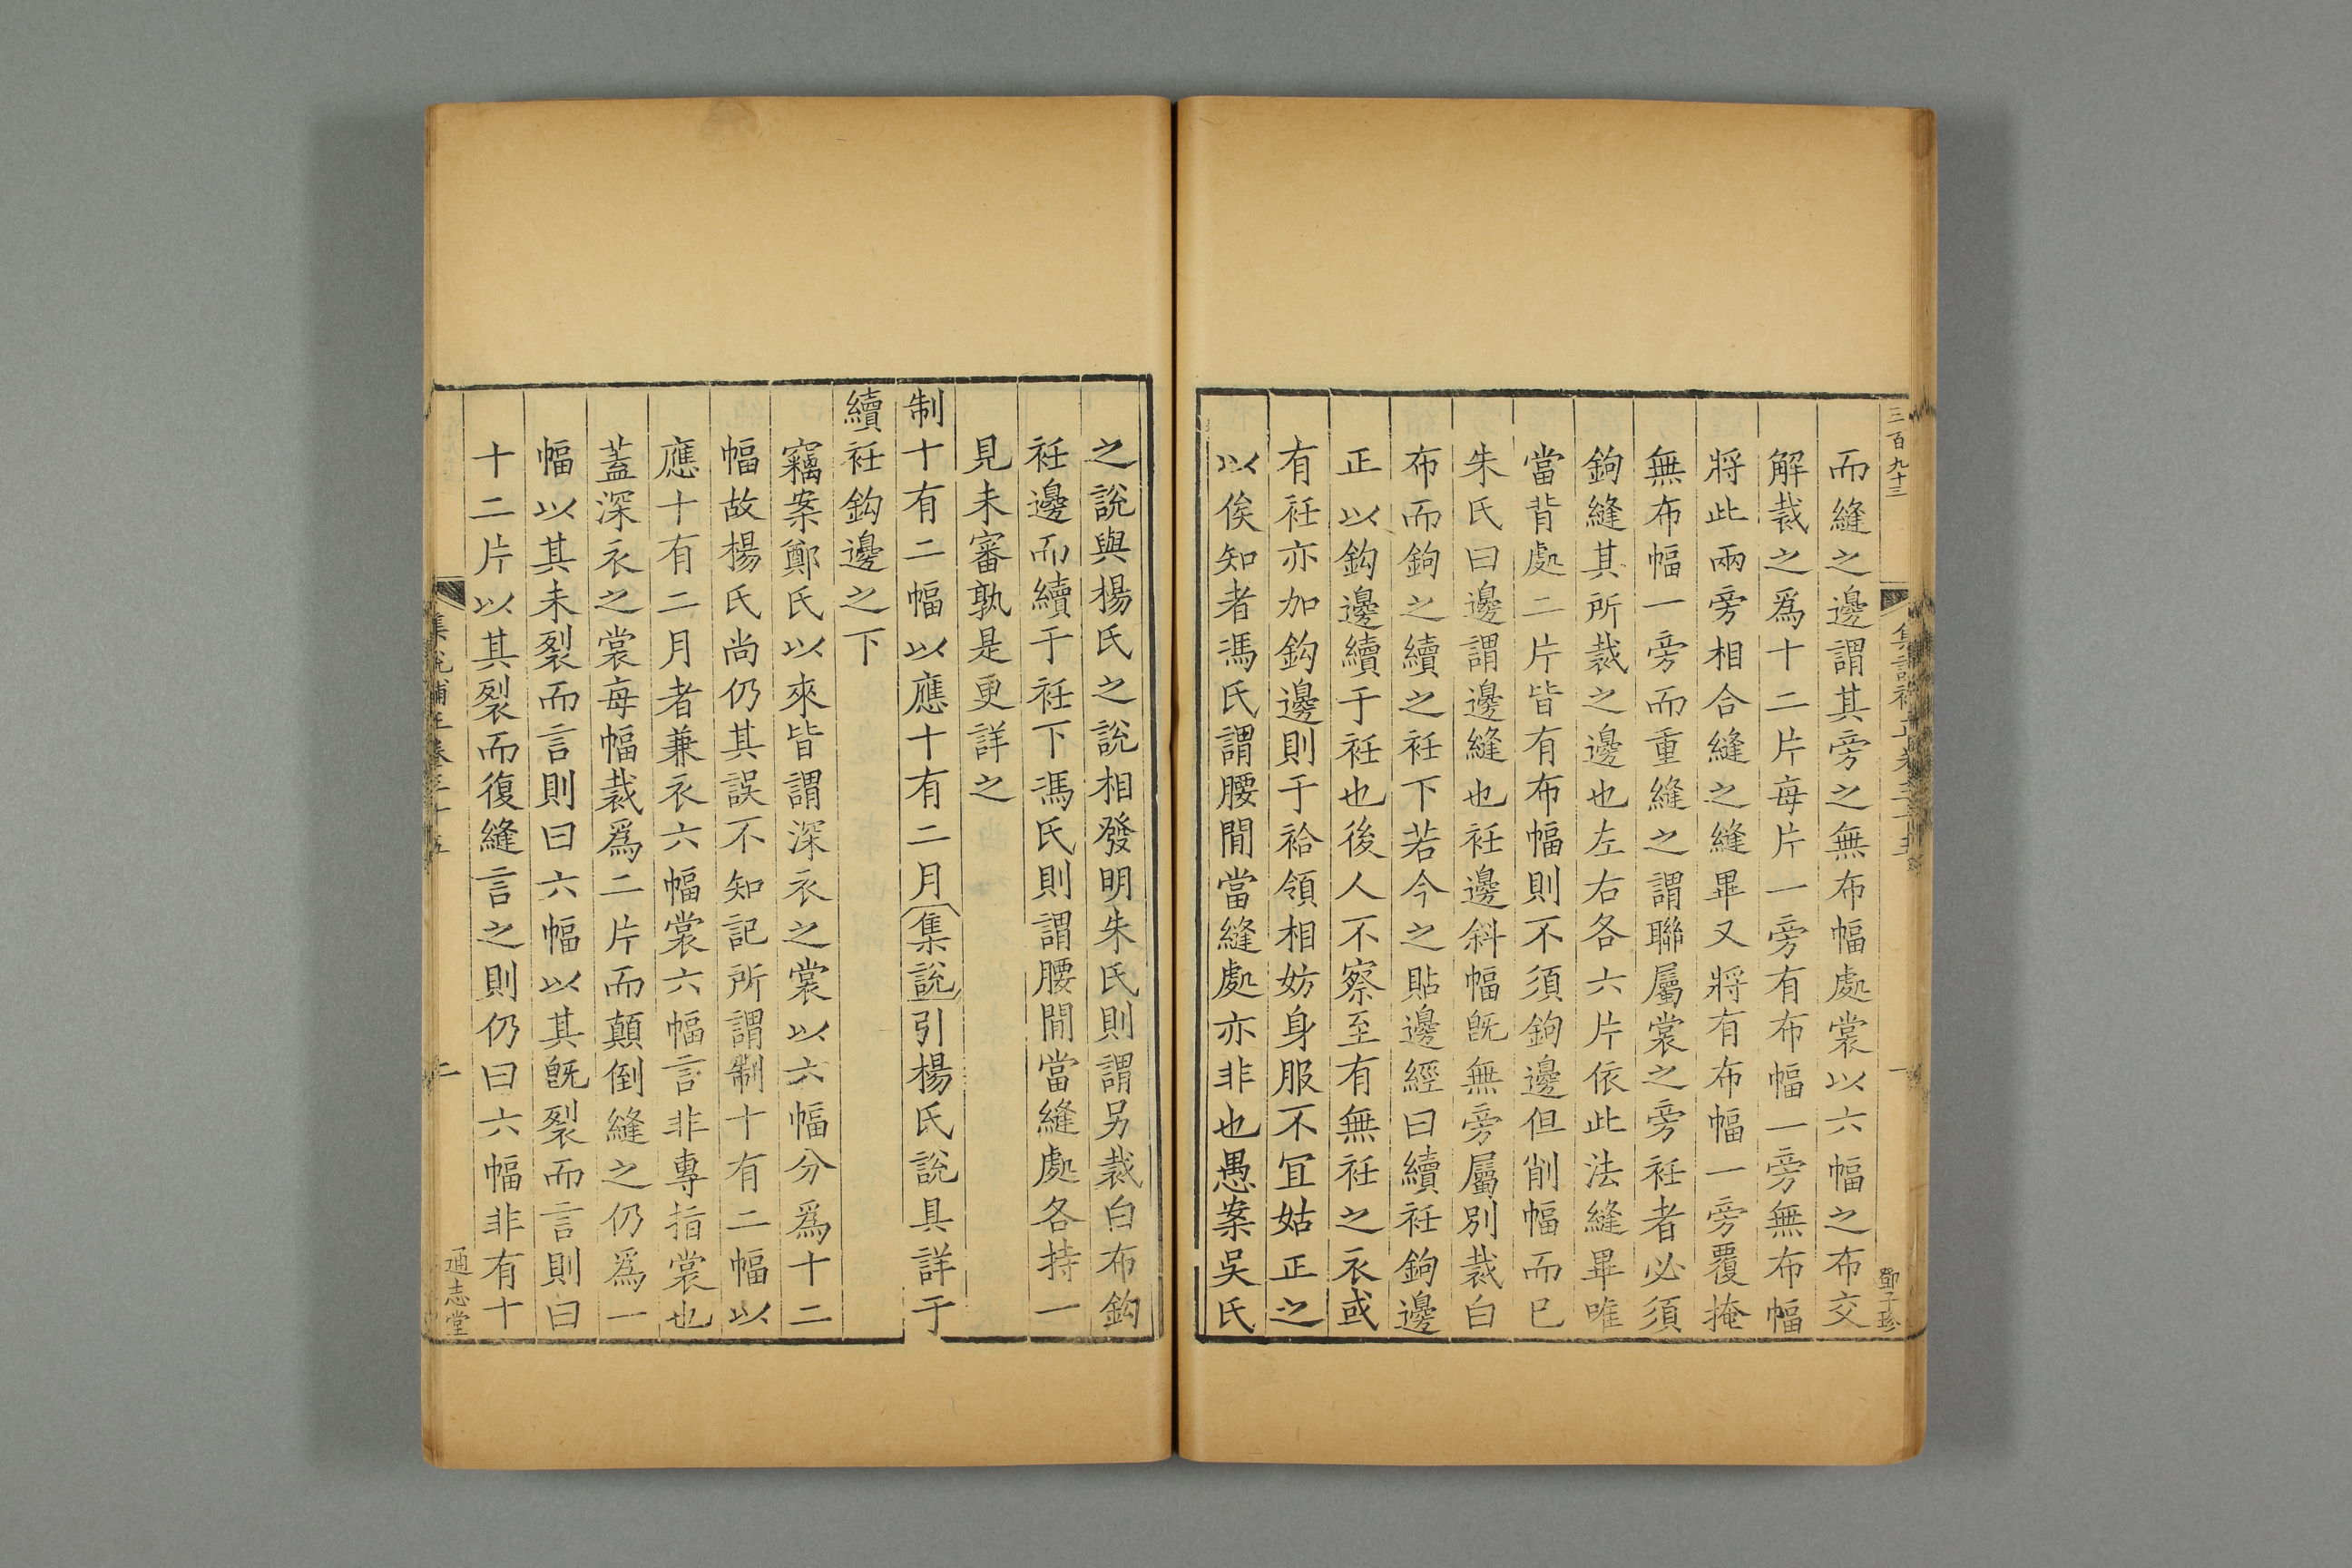 三百九十三
鄧子珍
而縫之邊謂其旁之無布幅處裳以六幅之布交
解裁之爲十二片每片一旁有布幅一旁無布幅
將此兩旁相合縫之縫畢又將有布幅一旁覆掩
無布幅一旁而重縫之謂聯屬裳之旁衽者必須
鉤縫其所裁之邊也左右各六片依此法縫畢唯
當背處二片皆有布幅則不須鉤邊但削幅而已
朱氏曰邊謂邊縫也衽邊斜幅旣無旁屬別裁白
布而鉤之續之衽下若今之貼邊經曰續衽鉤邊
正以鉤邊續于衽也後人不察至有無衽之衣或
有衽亦加鉤邊則于袷領相妨身服不宜姑正之
以俟知者馮氏謂腰閒當縫處亦非也愚案吳氏
之說與楊氏之說相發明朱氏則謂另裁白布鉤
衽邊而續于衽下馮氏則謂腰閒當縫處各持一
見未審孰是更詳之
制十有二幅以應十有二月集說引楊氏說具詳于
續衽鉤邊之下
竊案鄭氏以來皆謂深衣之裳以六幅分爲十二
幅故楊氏尚仍其誤不知記所謂制十有二幅以
應十有二月者兼衣六幅裳六幅言非專指裳也
蓋深衣之裳每幅裁爲二片而顚倒縫之仍爲一
幅以其未裂而言則曰六幅以其旣裂而言則曰
十二片以其裂而復縫言之則仍曰六幅非有十
集說補正卷三十五
二
通志堂